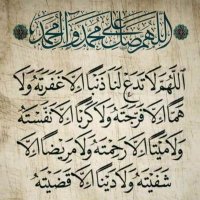 اللهم صل على محمد وآل محمد
اَللّٰهُمَّ لَا تَدَعْ لَنَا ذَنْبًا اِلَّا غَفَرْتَهُ وَلَا
هَمًّا اِلَّا فَرَّجْتَهُ وَلَا كَرْبًا اِلَّا نَفَّسْتَهُ
وَلَا مَيِّتًا اِلَّا رَحِمْتَهُ وَلَا مَرِيضًا اِلَّا
شَفَيْتَهُ وَلَا دَيْنًا اِلَّا قَضَيْتَهُ